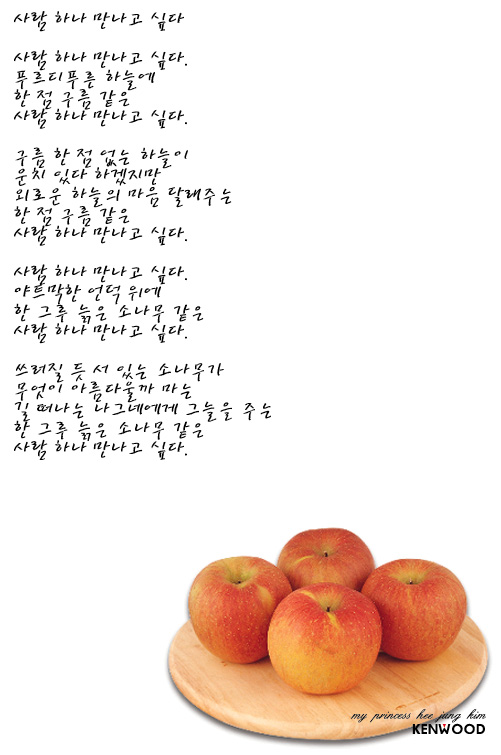 사람 하나 만나고 싶다
사람 하나 만나고 싶다.
푸르디푸른 하늘에
한 점 구름 같은
사람 하나 만나고 싶다.
구름 한 점 없는 하늘이
운치 있다 하겠지만
외로운 하늘의 마음 달래주는
한 점 구름 같은
사람 하나 만나고 싶다.
사람 하나 만나고 싶다.
야트막한 언덕 위에
한 그루 늙은 소나무 같은
사람 하나 만나고 싶다.
쓰러질 듯 서 있는 소나무가
무엇이 아름다울까 마는
길 떠나는 나그네에게 그늘을 주는
한 그루 늙은 소나무 같은
사람 하나 만나고 싶다.
my princess hee jung kim
KENWOOD